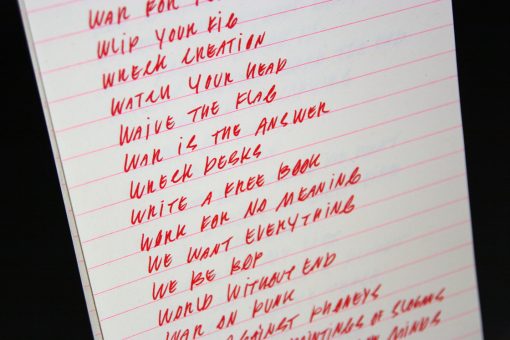 WAR FOR
WLIP YOUR FIG
WRECK CREATION
WATCH YOUR HEAD
WAIVE THE FLAG
WAR IS THE ANSWER
WRECK DESKS
WRITE A FREE BOOK
WORK FOR NO MEANING
WE WANT EVERYTHING
WE BE BOP
WORLD WITHOUT END
WAR ON PUNK
AGAINST PHONEYS
PAINTINGS OF SLOGANS
MINDS